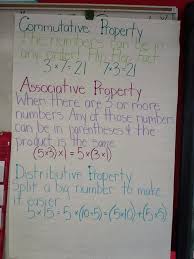 Commutative Property
The numbers can be in
any order. Flip flop fact
3×7=21 7×3=21
Associative Property
When there are 3 or more
numbers. Any of those numbers
can be in parentheses & the
product is the same
(5×3)×1=5×(3×1)
Distributive Property
Split a big number to make
it easier.
5×15=5×(10+5)=(5×10)+(5×5)